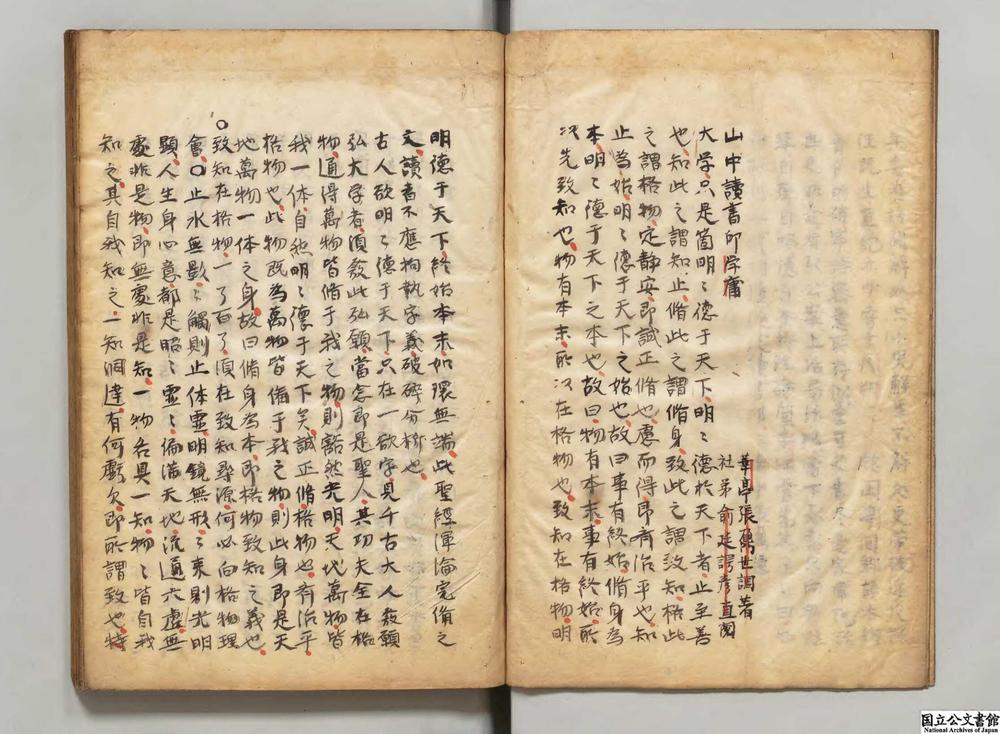 山中讀書印学庸
華亭張鼐世調著
社弟俞廷諤彥直閱
大学只是箇明〻德于天下明〻德於天下者止至善
也知此之謂知止脩此之謂脩身致此之謂致知格此
之謂格物定静安即誠正脩也慮而得即齊治平也知
止為始明〻德于天下之始也故曰事有終始脩身為
本明〻德于天下之本也故曰物有本末事有終始所
次先致知也物有本末所次在格物也致知在格物明
明德于天下終始本末如環無端此聖經渾淪完脩之
文讀者不應拘執字義破碎分析也
古人欲明〻德于天下只在一欲字見千古大人發願
弘大学者須發此弘願當念即是聖人其功夫全在格
物通得萬物皆俻于我之物則豁然光明天地萬物皆
我一体自然明〻德于天下矣誠正脩格物也齊治平
格物也此物既為萬物皆俻于我之物則此身即是天
地萬物一体之身故曰脩身為本即格物致知之義也
致知在格物一了百了須在致知尋源何必向格物理
會〇止水無影〻觸則止体靈明鏡無形〻來則光明
顯人生身心意都是昭〻靈〻徧滿天地流通六虛無
處非是物即無處非是知一物各具一知物〻皆自我
知之其自我知之一知洞達有何虧欠即所謂致也特
国立公文書館
National Archives of Japan